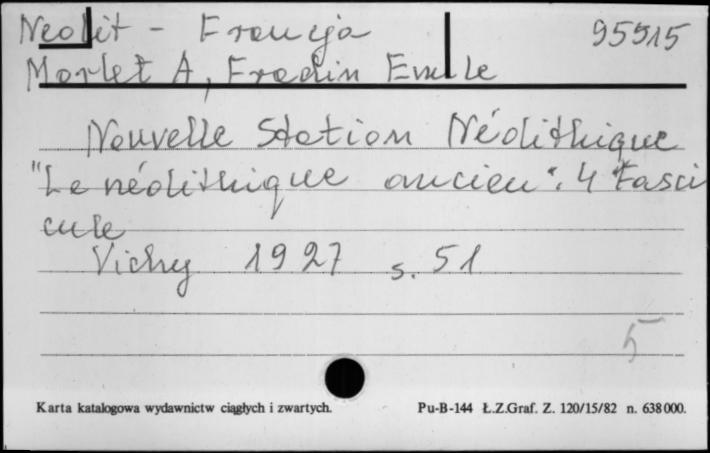 Neolit - Francja 95515
Morlet A, Fradin Emile
Nouvelle Station Néolithique
"Le néolithique ancien". 4 Fasci
cule
Vichy 1927 s. 51
5
Karta katalogowa wydawnictw ciągłych i zwartych. Pu-B-144 Ł.Z.Graf. Z. 120/15/82 n. 638000.